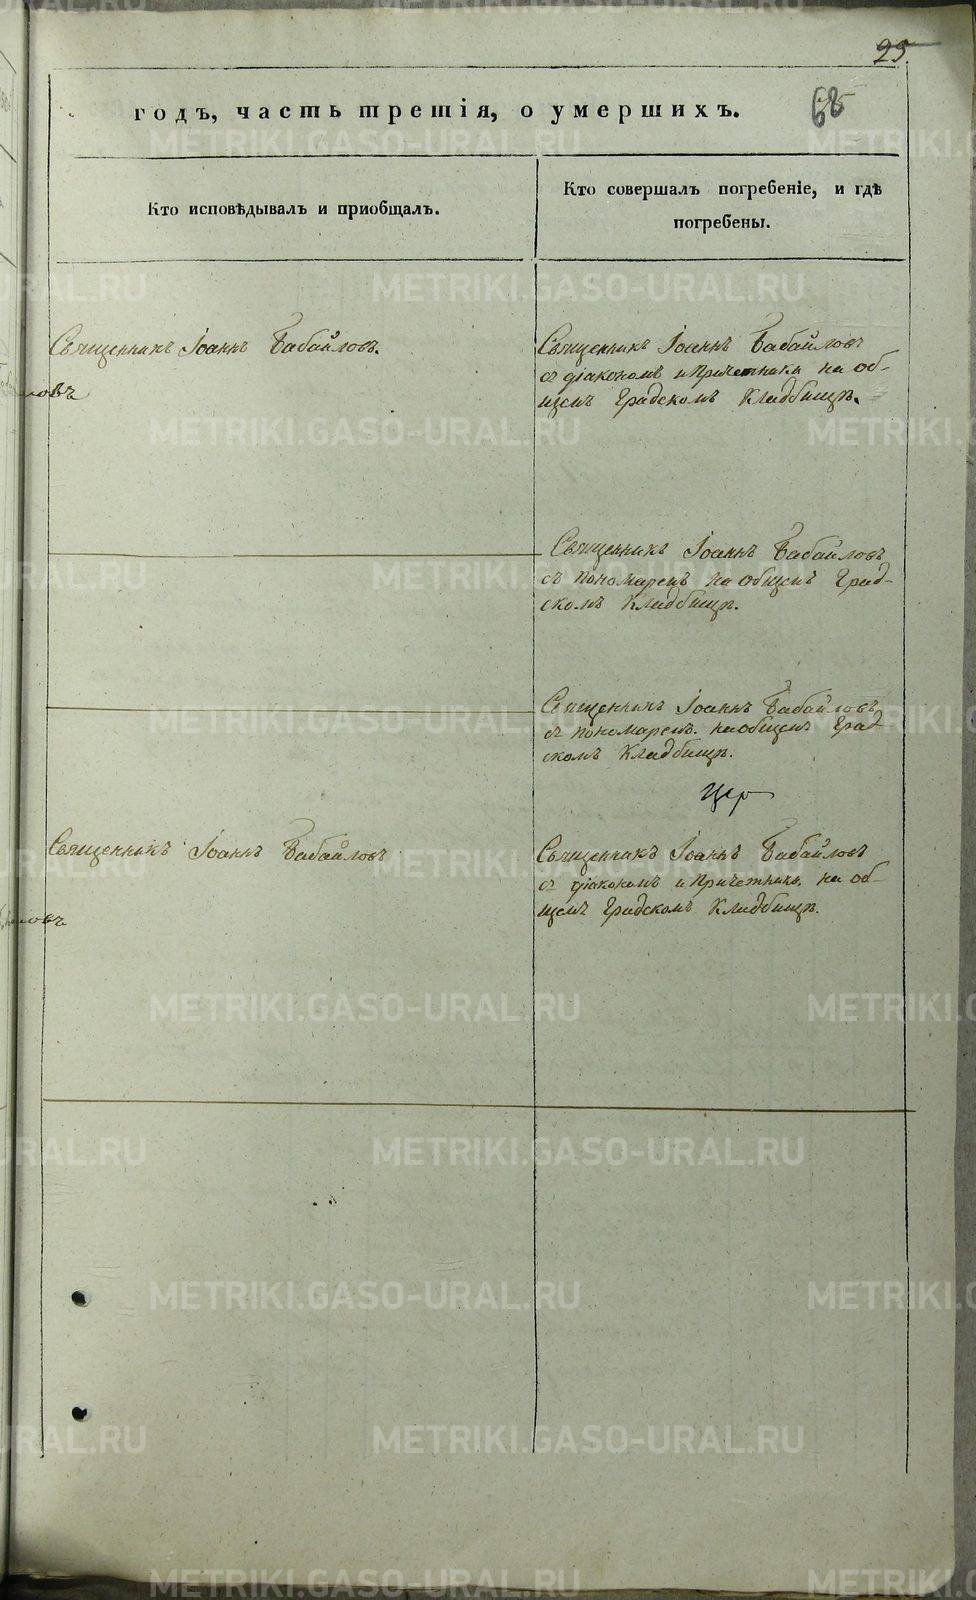 25
годъ, часть третія, о умершихъ.
Кто исповѣдывалъ и приобщалъ.
Кто совершалъ погребеніе, и гдѣ
погребены.
Священникъ Іоаннъ Бабайловъ.
Священникъ Іоаннъ Бабайловъ
съ діакономъ и причетники на об-
щемъ Градскомъ Кладбищѣ.
ловъ
Священникъ Іоаннъ Бабайловъ
съ пономаремъ на общемъ Град-
скомъ Кладбищѣ.
Священникъ Іоаннъ Бабайловъ
съ пономаремъ на общемъ Град
скомъ Кладбищѣ.
Священникъ Іоаннъ Бабайловъ
Священникъ Іоаннъ Бабайловъ
съ діакономъ и причетники на об-
щемъ Градскомъ Кладбищѣ.
ловъ
METRIKI.GASO-URAL.RU